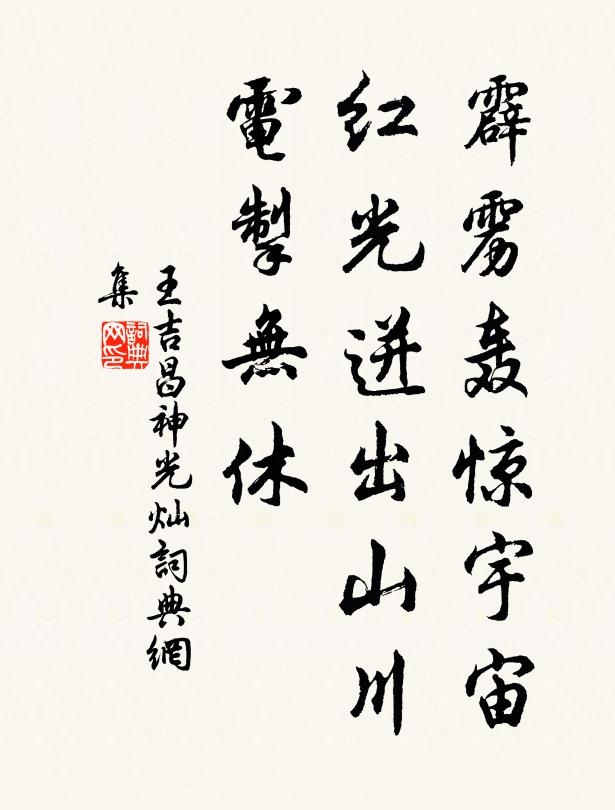 霹雳轰惊宇宙
红光迸出山川
電掣無休
王吉昌神光灿詞典網
集
詞典
网印